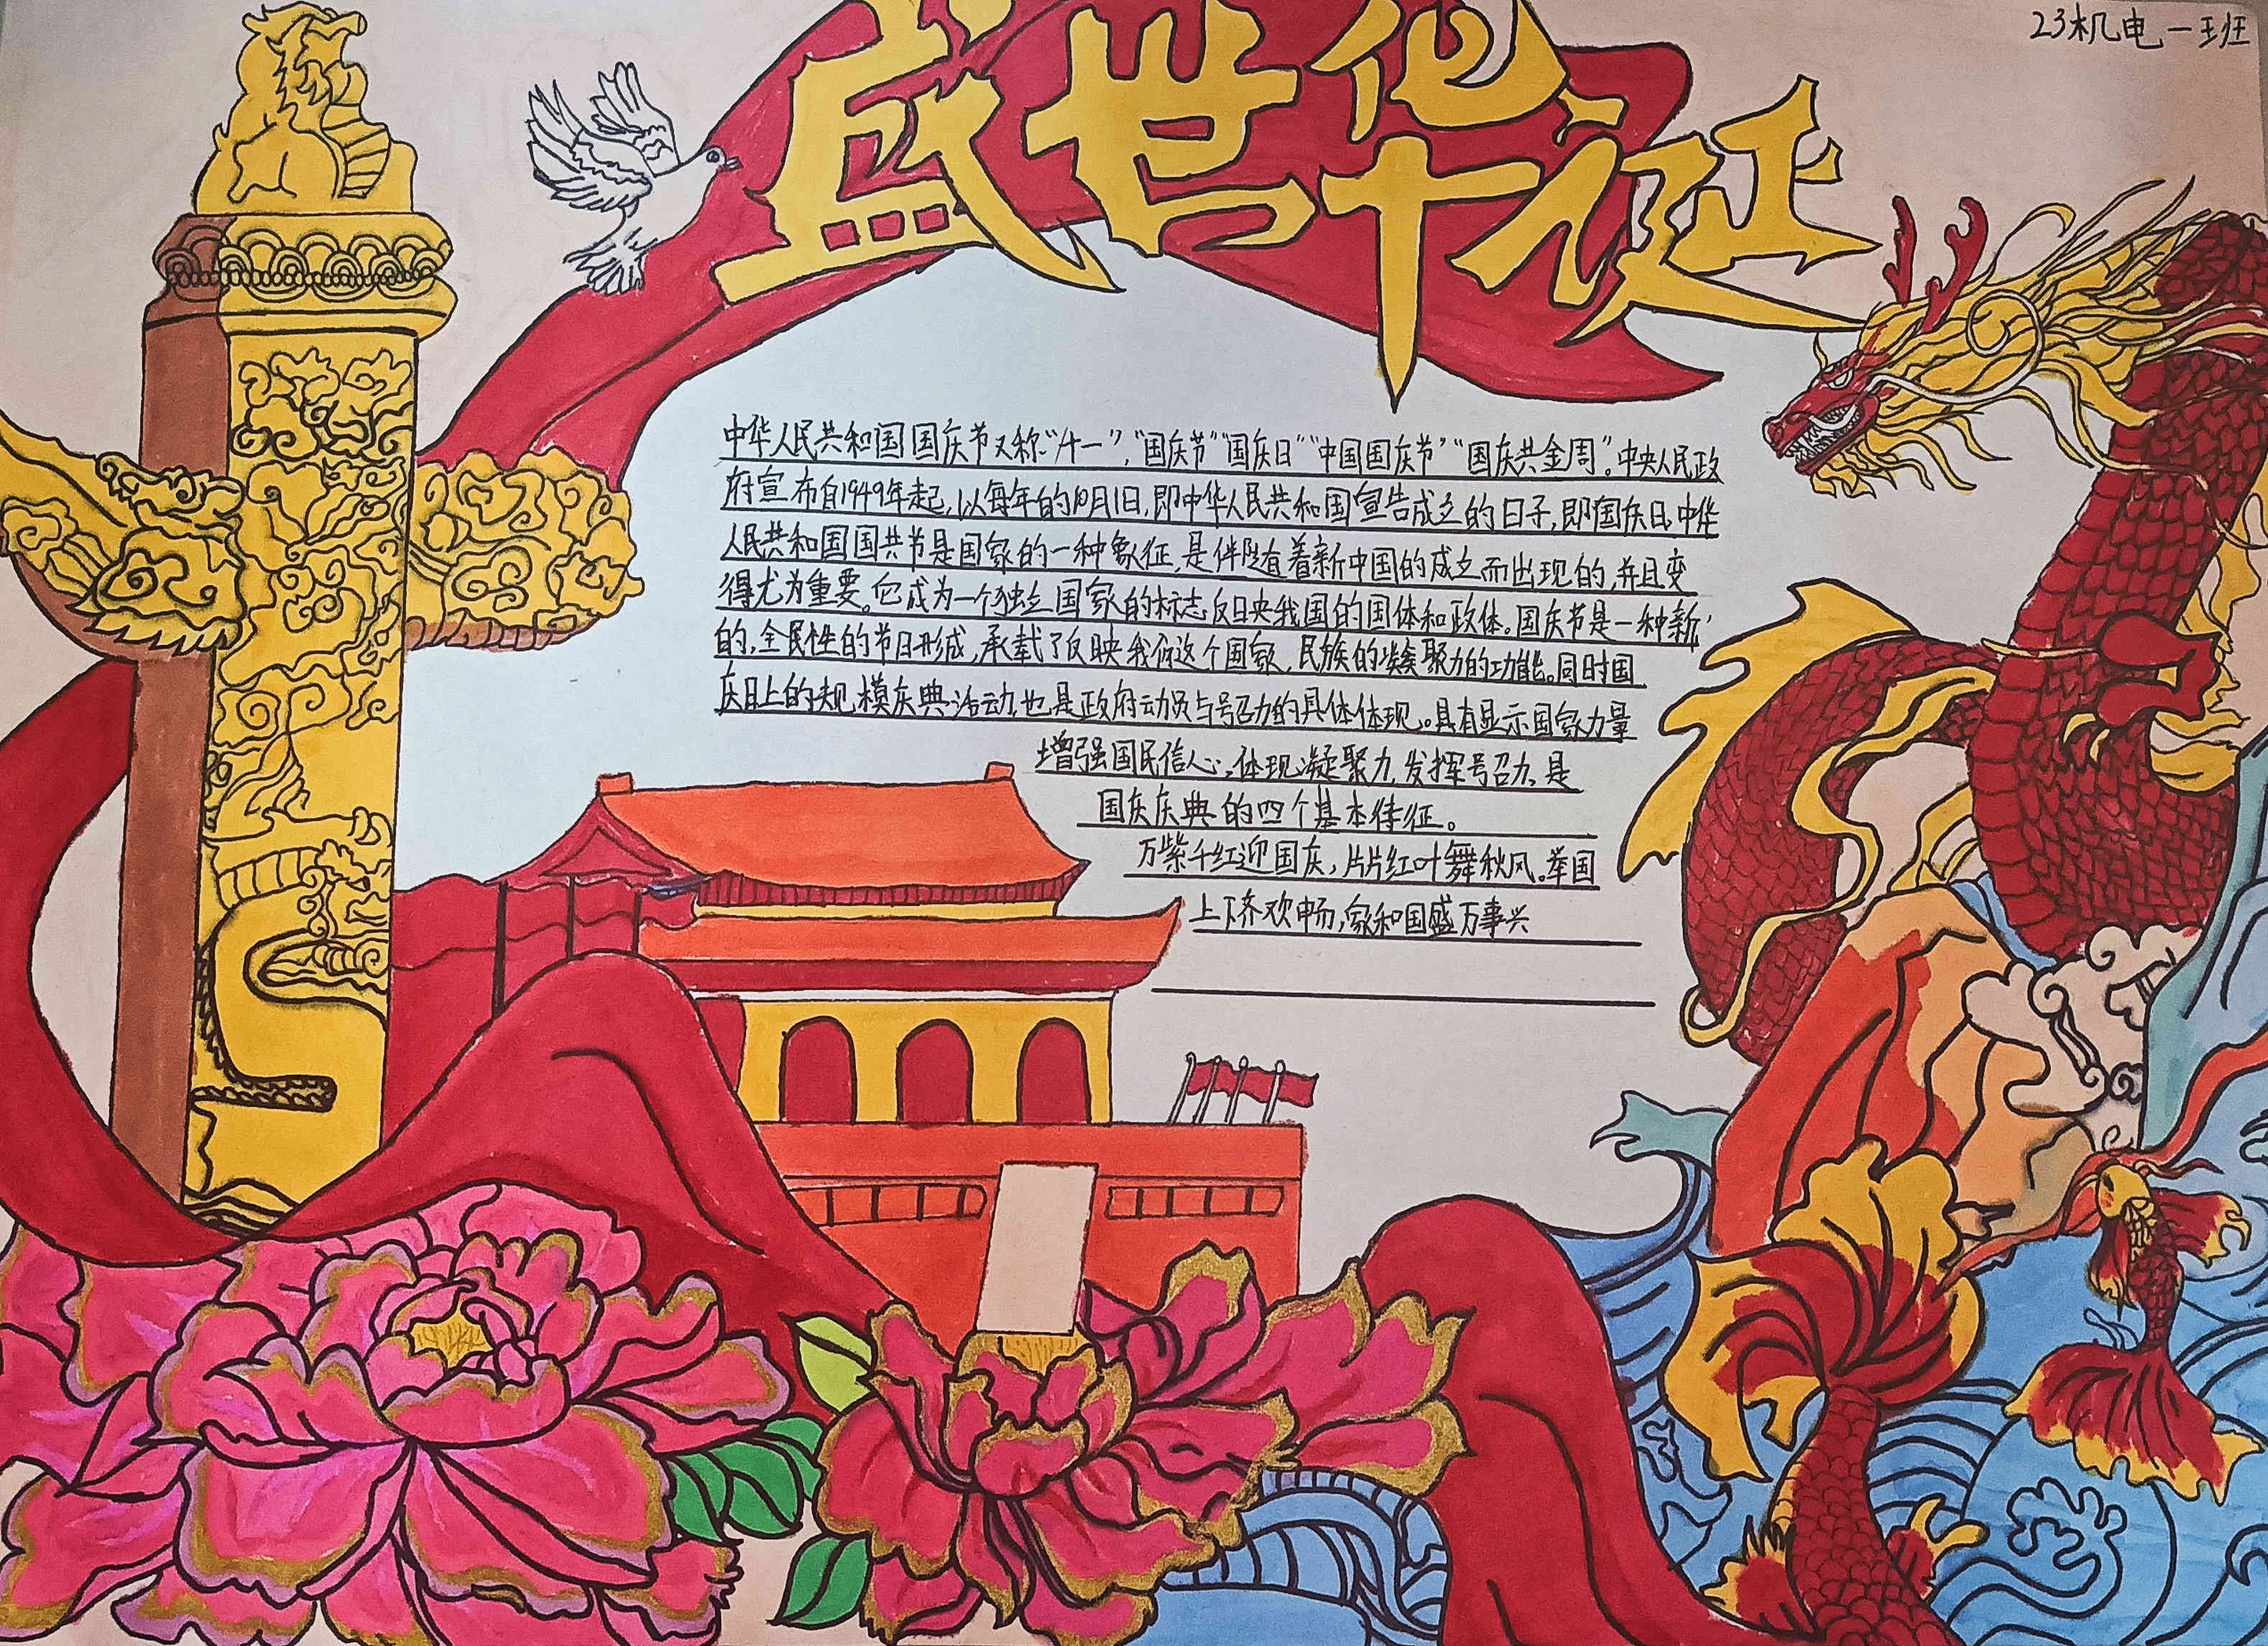 23机电一班
盛世华诞
中华人民共和国国庆节又称“十一”,“国庆节”“国庆日”“中国国庆节”“国庆共金周”。中央人民政
府宣布自1949年起,以每年的10月1日,即中华人民共和国宣告成立的日子,即国庆日,中华
人民共和国国共节是国家的一种象征,是伴随着新中国的成立而出现的,并且变
得尤为重要。它成为一个独立国家的标志,反映我国的国体和政体。国庆节是一种新
的,全民性的节日形成,承载了反映我们这个国家、民族的凝聚力的功能。同时国
庆日上的规模庆典活动,也是政府动员与号召力的具体体现。具有显示国家力量
增强国民信心,体现凝聚力,发挥号召力,是
国庆庆典的四个基本特征。
万紫千红迎国庆,片片红叶舞秋风。举国
上下齐欢畅,家和国盛万事兴